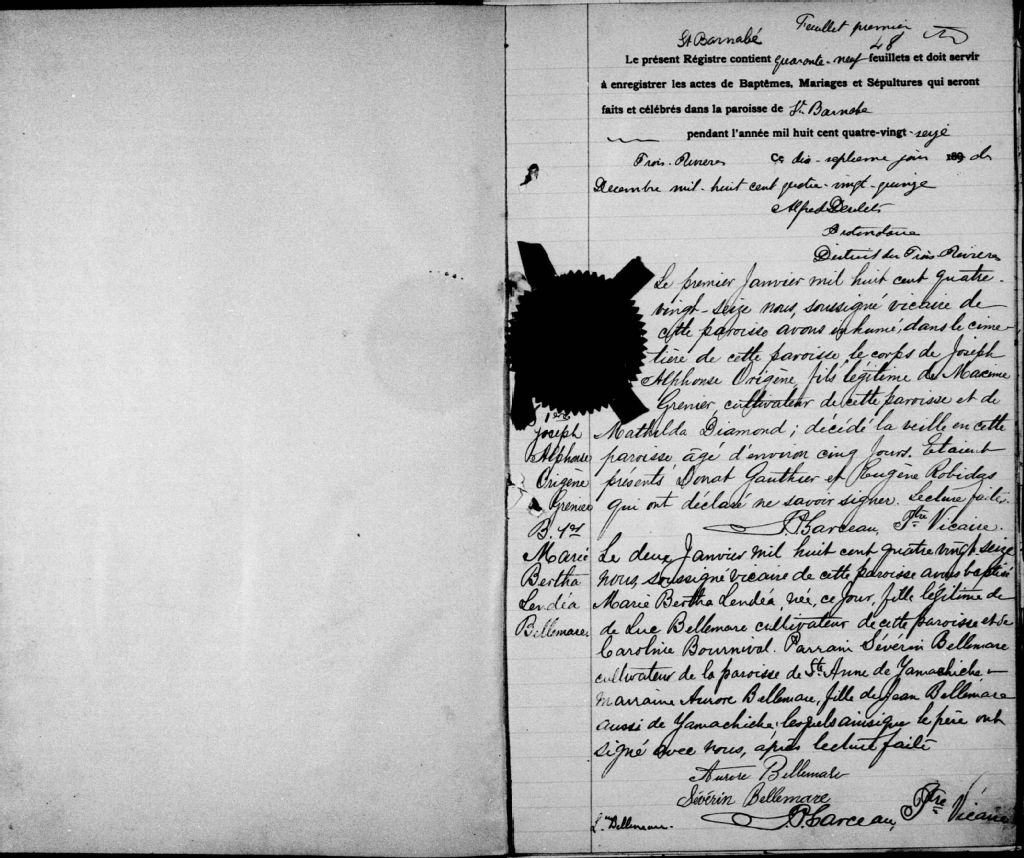 Feuillet premier
St Barnabé
48
Le présent Régistre contient quaronte-neuf feuillets et doit servir
à enregistrer les actes de Baptêmes, Mariages et Sépultures qui seront
faits et célébrés dans la paroisse de St. Barnabe
pendant l'année mil huit cent quatre-vingt-seize
Trois-Rivieres Ce dix-septieme jour 189 de
Decembre mil-huit cent quatre-vingt-quinze
Alfred Desilets
Protonotaire
District des Trois Rivieres
Le premier Janvier mil huit cent quatre-
vingt-seize nous, soussigné vicaire de
cette paroisse avons inhumé, dans le cime-
tière de cette paroisse, le corps de Joseph
Alphonse Origène, fils légitime de Maxime
Grenier, cultivateur de cette paroisse et de
Mathilda Diamond; décédé la veille en cette
paroisse âgé d'environ cinq jours. Etaient
présents Donat Gauthier et Eugène Robidas
qui ont déclaré ne savoir signer. Lecture faite.
Ptre Vicaire.
Joseph
Alphonse
Origène
Grenier
B. 1er
Marie
Bertha
Lendéa
Bellemare.
Le deux Janvier mil huit cent quatre vingt seize
nous, soussigné vicaire de cette paroisse avons baptisé
Marie Bertha Lendéa, née, ce jour, fille légitime de
de Luc Bellemare cultivateur de cette paroisse et de
Caroline Bournival. Parrain Sévérin Bellemare
cultivateur de la paroisse de Ste Anne de Yamachiche
Marraine Aurore Bellemare, fille de Jean Bellemare
aussi de Yamachiche, lesquels ainsi que le père ont
signé avec nous, après lecture faite
Aurore Bellemare
Sévérin Bellemare
Bellemare.
Ptre Vicaire